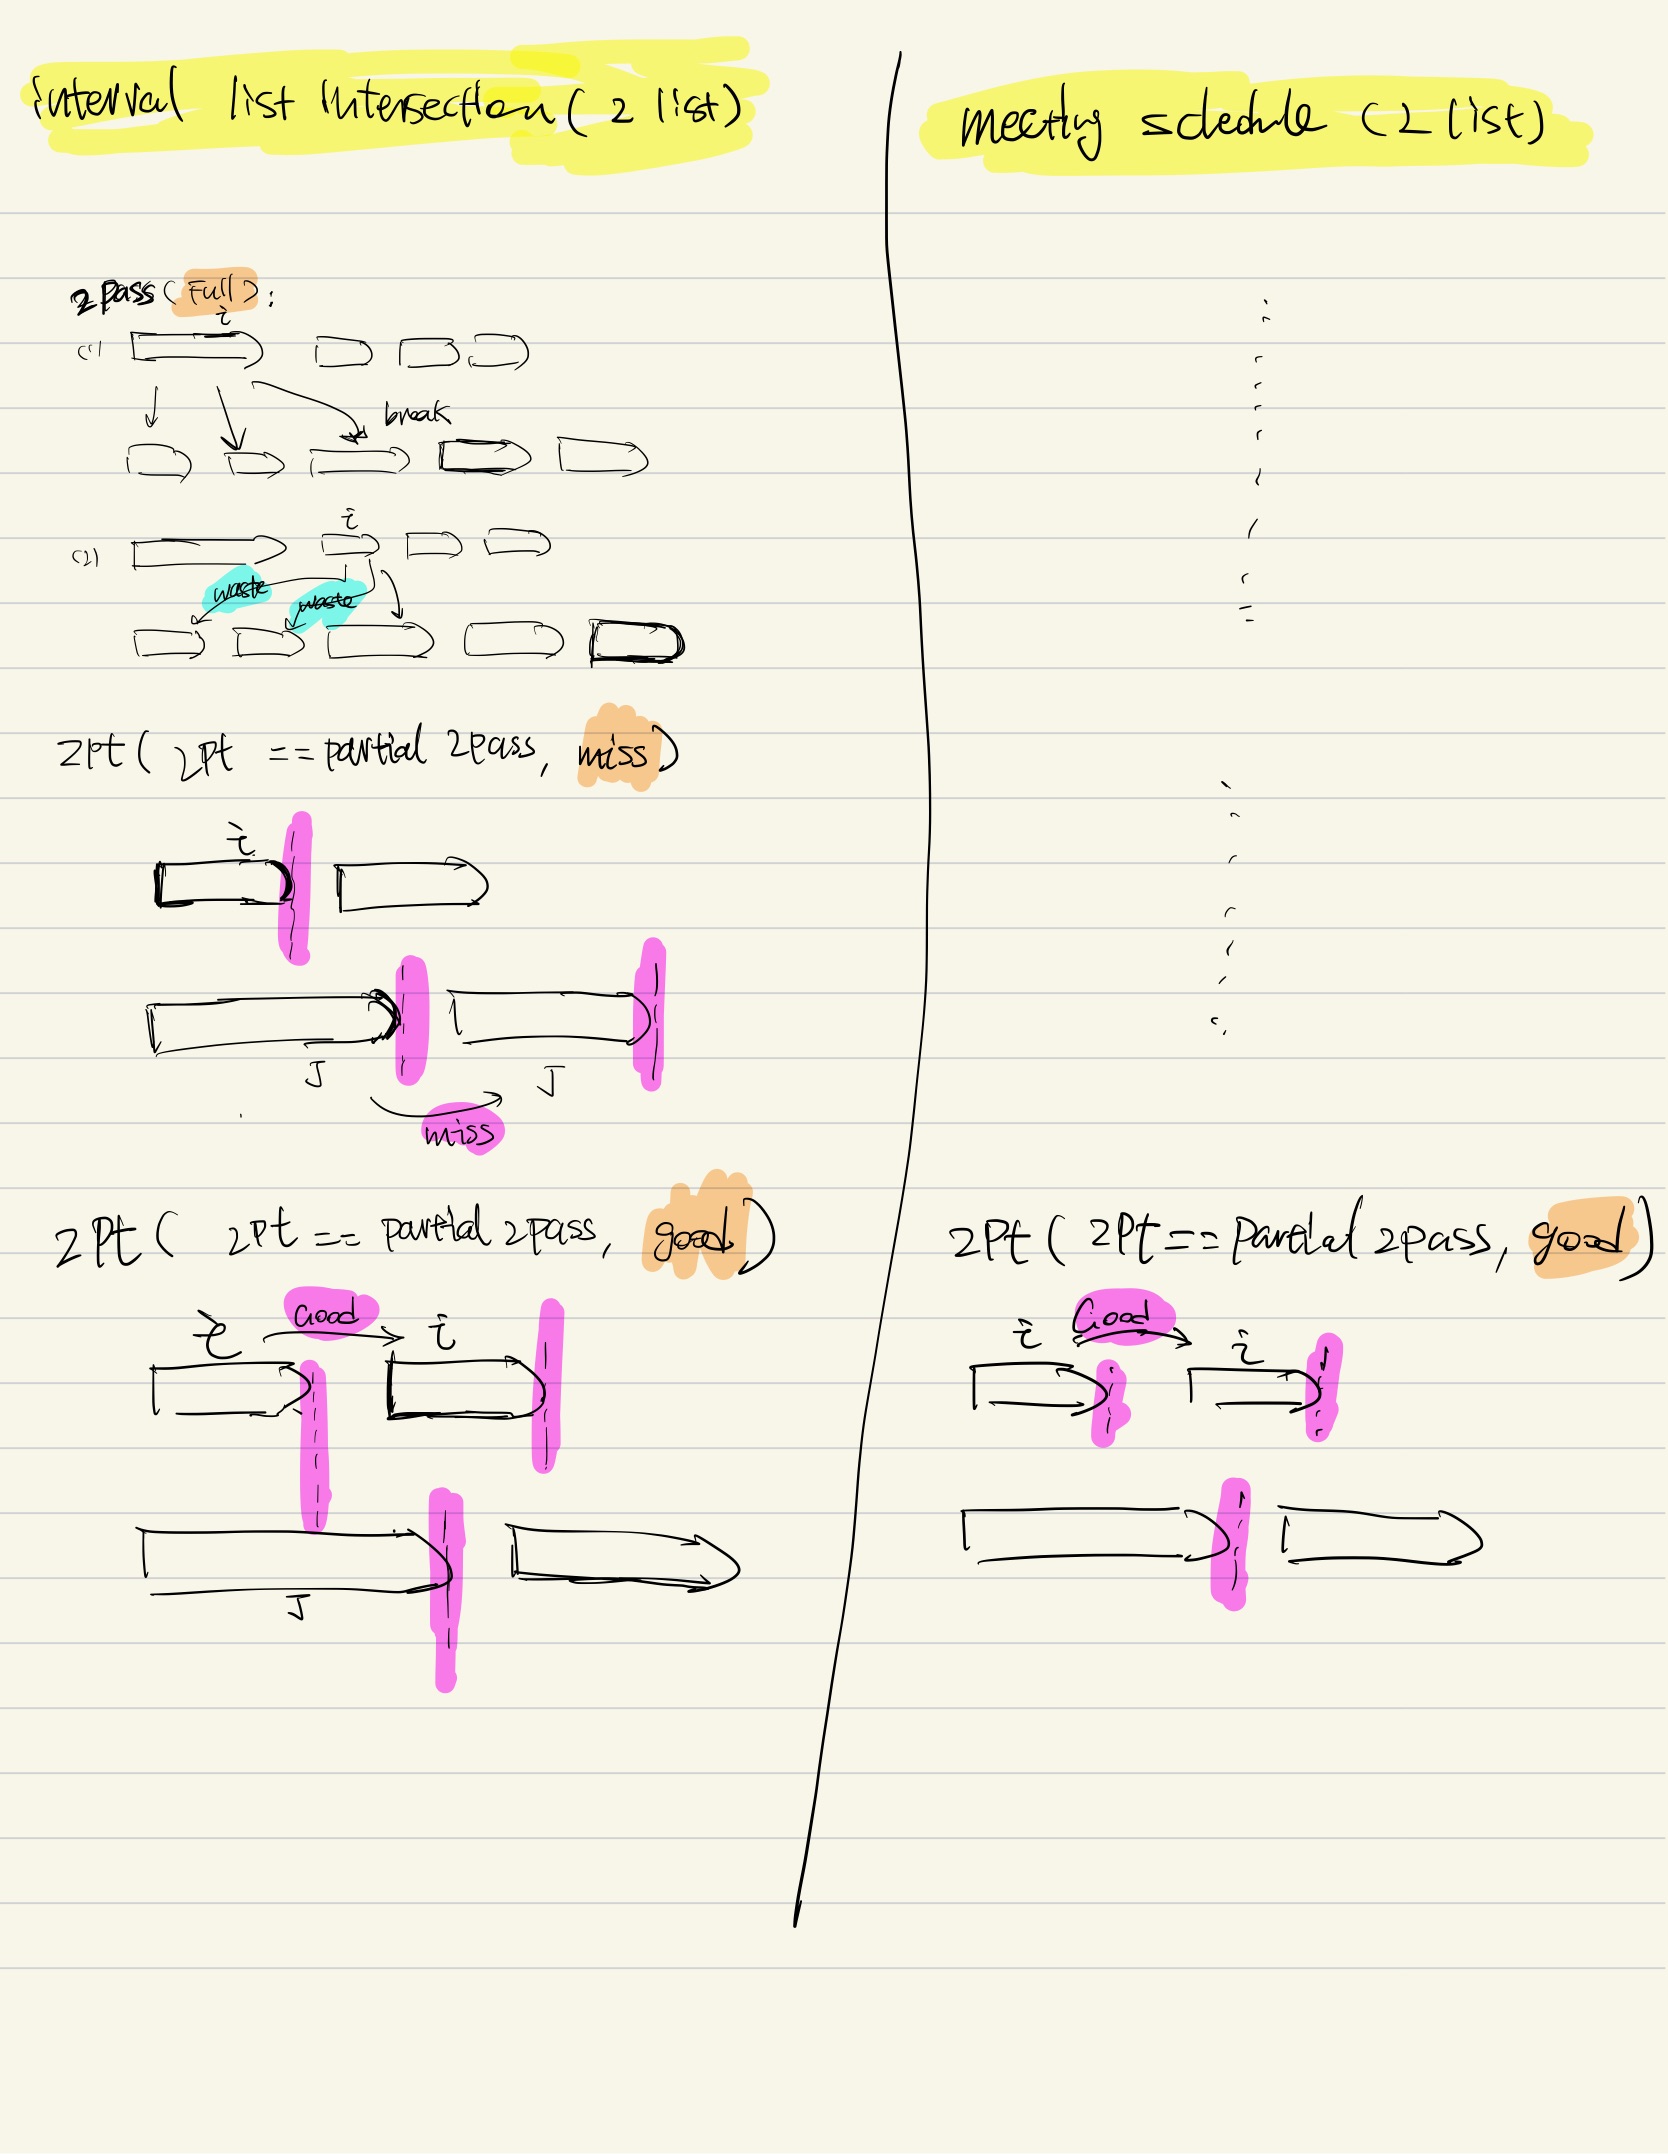 interval list intersection (2 list)
2 pass (Full):
i
(1)
break
i
(2)
waste
waste
2pt ( 2pt == partial 2pass, miss)
i
J
J
miss
2pt ( 2pt == partial 2pass, good)
Good
i
i
J
meeting schedule (2 list)
2pt ( 2pt == Partial 2pass, good)
Good
i
i